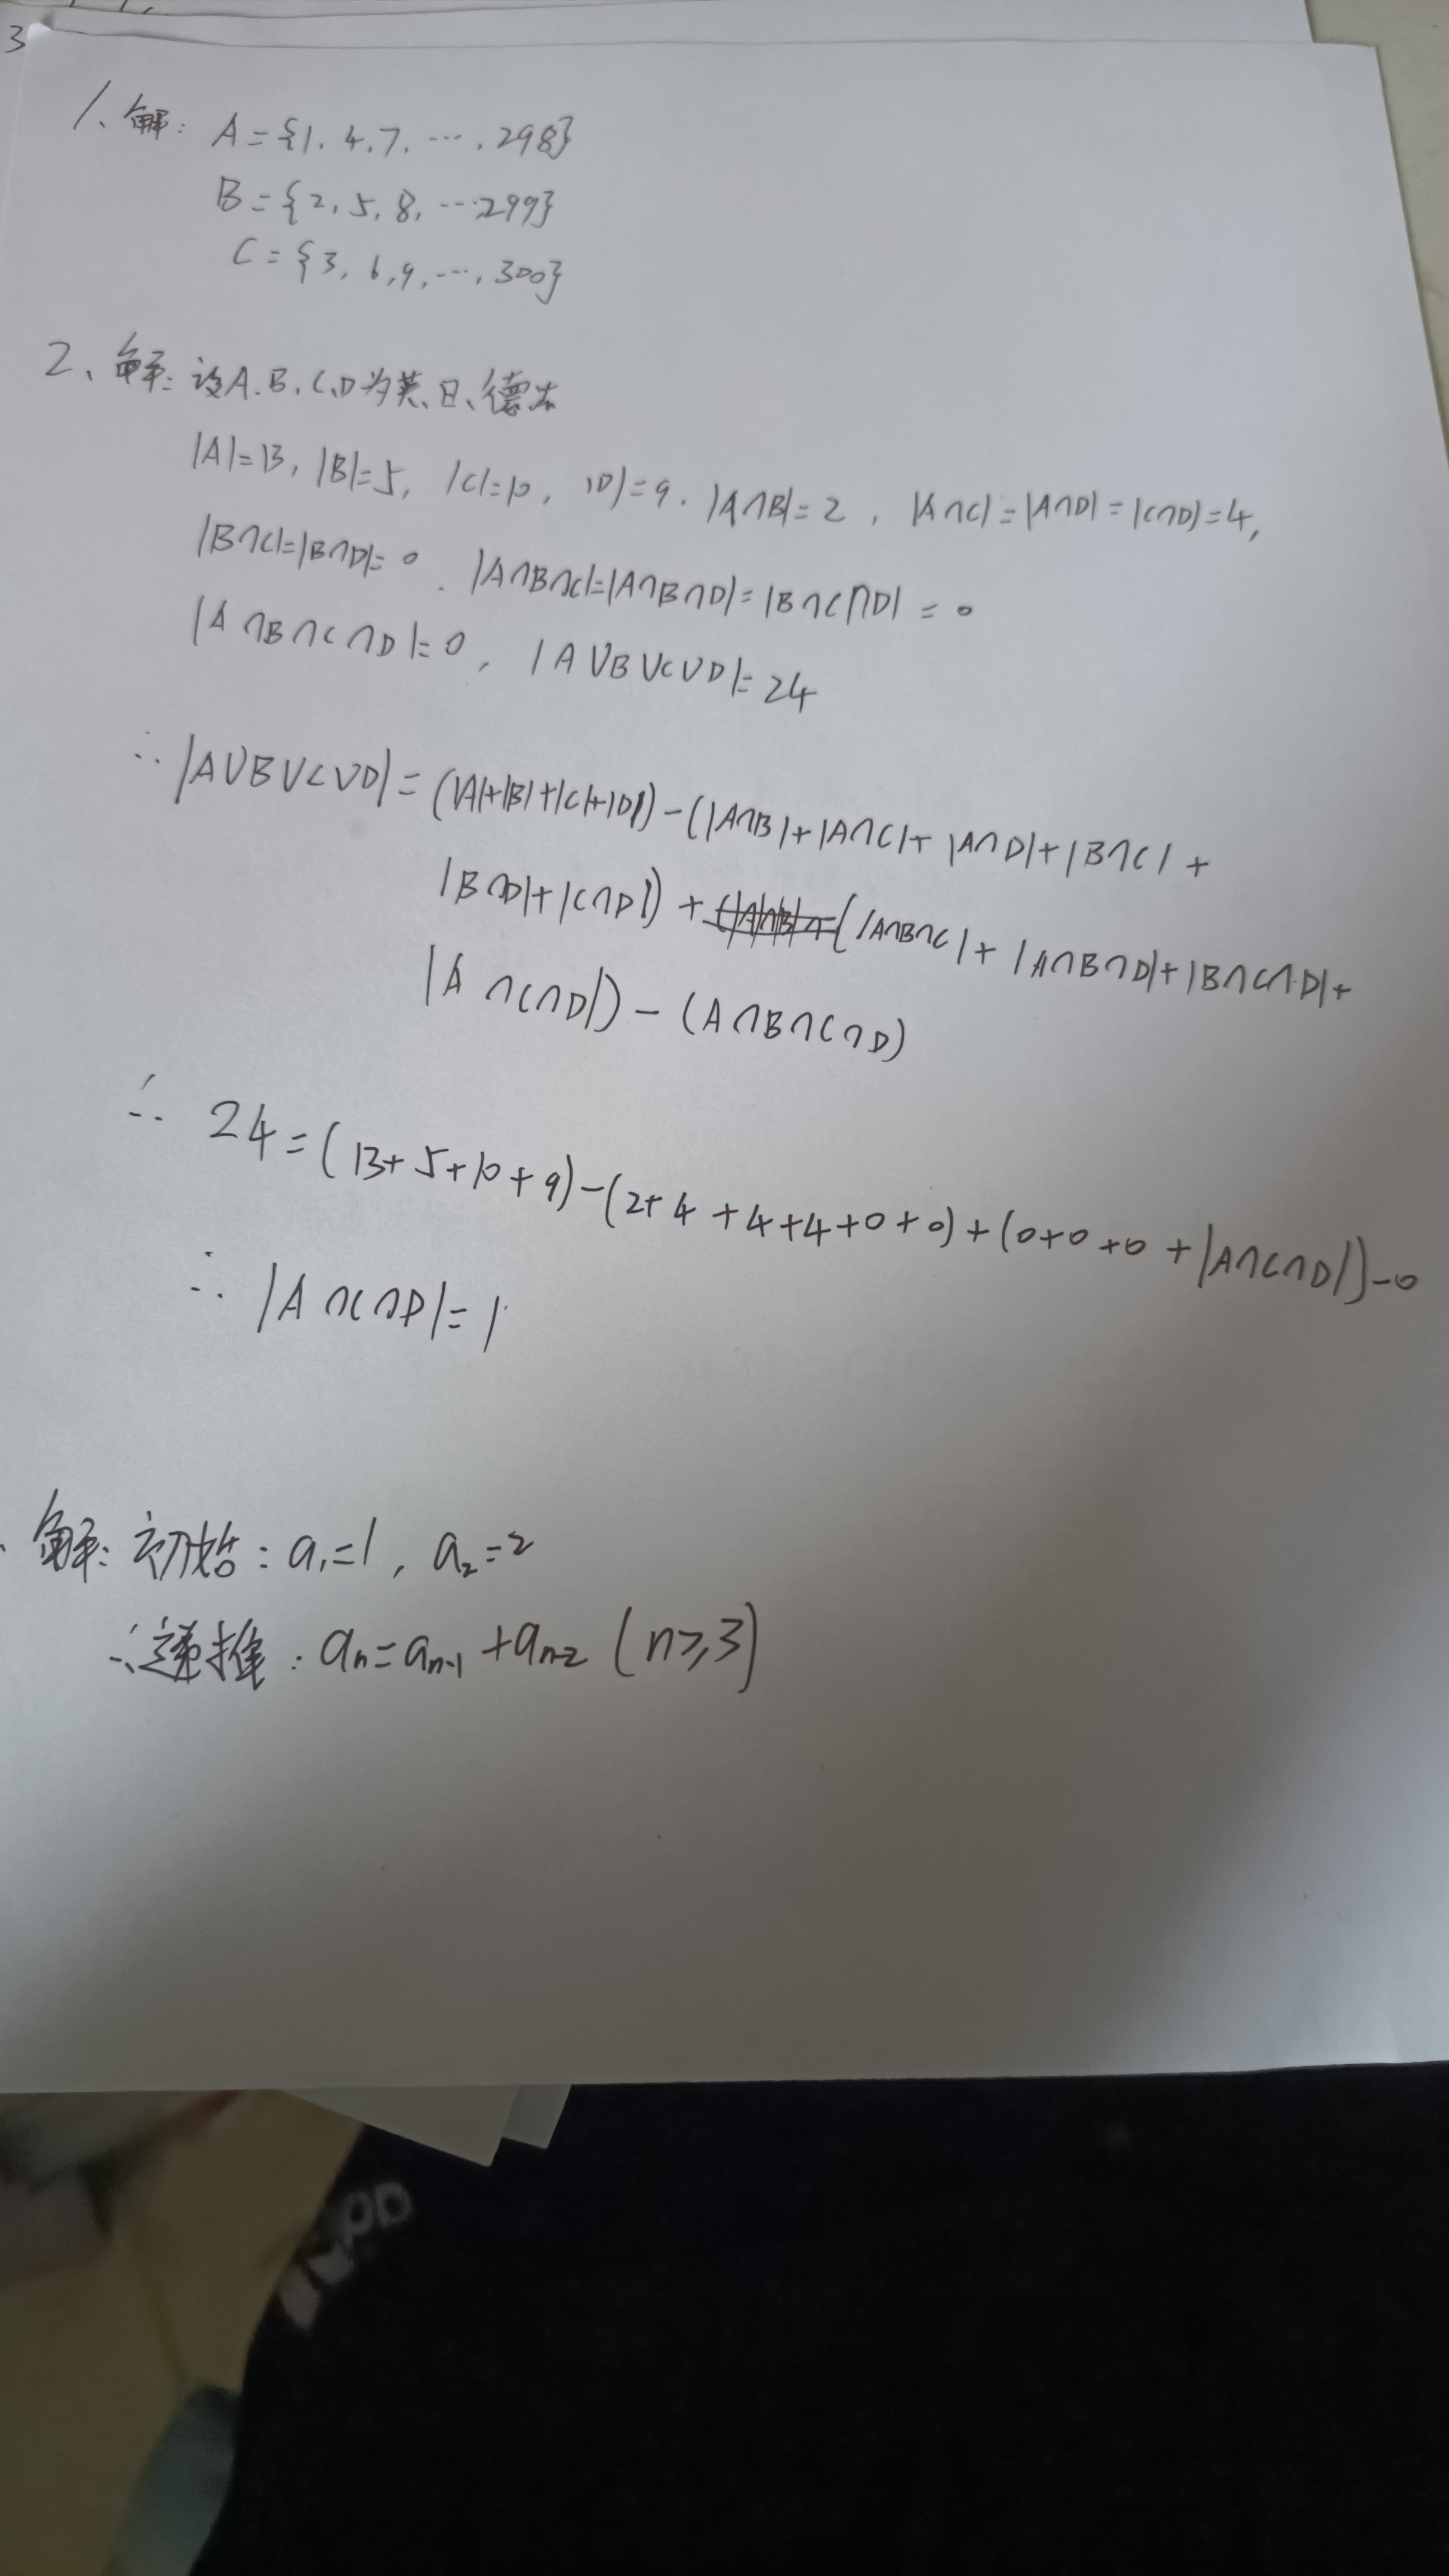 3
1、解: A={1, 4, 7, …, 298}
B={2, 5, 8, …299}
C={3, 6, 9, …, 300}
2、解: 设A.B.C、D为英、日、德、法
|A|=13, |B|=5, |C|=10, |D|=9. |A∩B|=2, |A∩C|=|A∩D|=|C∩D|=4,
|B∩C|=|B∩D|=0. |A∩B∩C|=|A∩B∩D|=|B∩C∩D|=0
|A∩B∩C∩D|=0, |A∪B∪C∪D|=24
∴|A∪B∪C∪D|=(|A|+|B|+|C|+|D|)-(|A∩B|+|A∩C|+|A∩D|+|B∩C|+
|B∩D|+|C∩D|)+(|A∩B∩C|+|A∩B∩D|+|B∩C∩D|+
|A∩C∩D|)-(A∩B∩C∩D)
∴ 24=(13+5+10+9)-(2+4+4+4+0+0)+(0+0+0+|A∩C∩D|)-0
∴ |A∩C∩D|=1
、解: 初始: a₁=1, a₂=2
∴递推: aₙ=aₙ₋₁+aₙ₋₂ (n≥3)